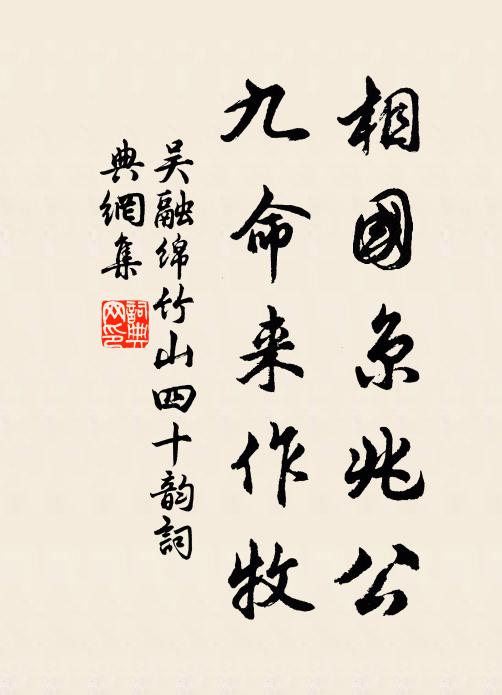 相國京兆公
九命来作牧
吴融绵竹山四十韵詞
典網集
詞典网印